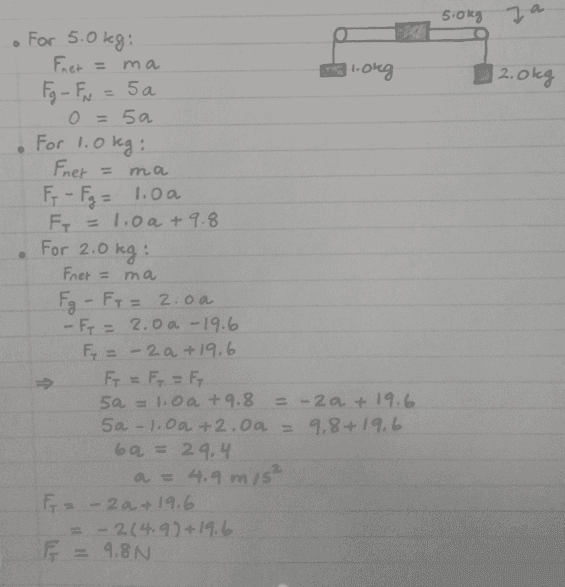 5.0kg a
1.0kg
2.0kg
• For 5.0kg:
Fnet = ma
Fg - FN = 5a
0 = 5a
• For 1.0 kg:
Fnet = ma
FT - Fg = 1.0a
FT = 1.0a + 9.8
• For 2.0 kg:
Fnet = ma
Fg - FT = 2.0a
-FT = 2.0a - 19.6
FT = -2a + 19.6
⇒ FT = FT = FT
5a = 1.0a + 9.8 = -2a + 19.6
5a - 1.0a + 2.0a = 9.8 + 19.6
6a = 29.4
a = 4.9 m/s²
FT = -2a + 19.6
= -2(4.9) + 19.6
FT = 9.8N